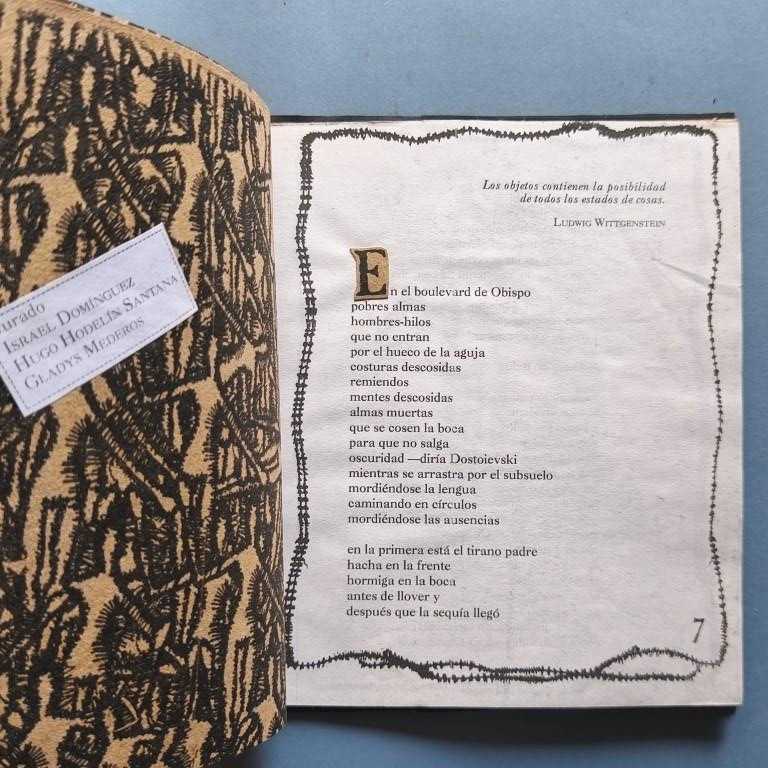 Jurado
ISRAEL DOMÍNGUEZ
HUGO HODELÍN SANTANA
GLADYS MEDEROS
Los objetos contienen la posibilidad
de todos los estados de cosas.
LUDWIG WITTGENSTEIN
En el boulevard de Obispo
pobres almas
hombres-hilos
que no entran
por el hueco de la aguja
costuras descosidas
remiendos
mentes descosidas
almas muertas
que se cosen la boca
para que no salga
oscuridad —diría Dostoievski
mientras se arrastra por el subsuelo
mordiéndose la lengua
caminando en círculos
mordiéndose las ausencias
en la primera está el tirano padre
hacha en la frente
hormiga en la boca
antes de llover y
después que la sequía llegó
7